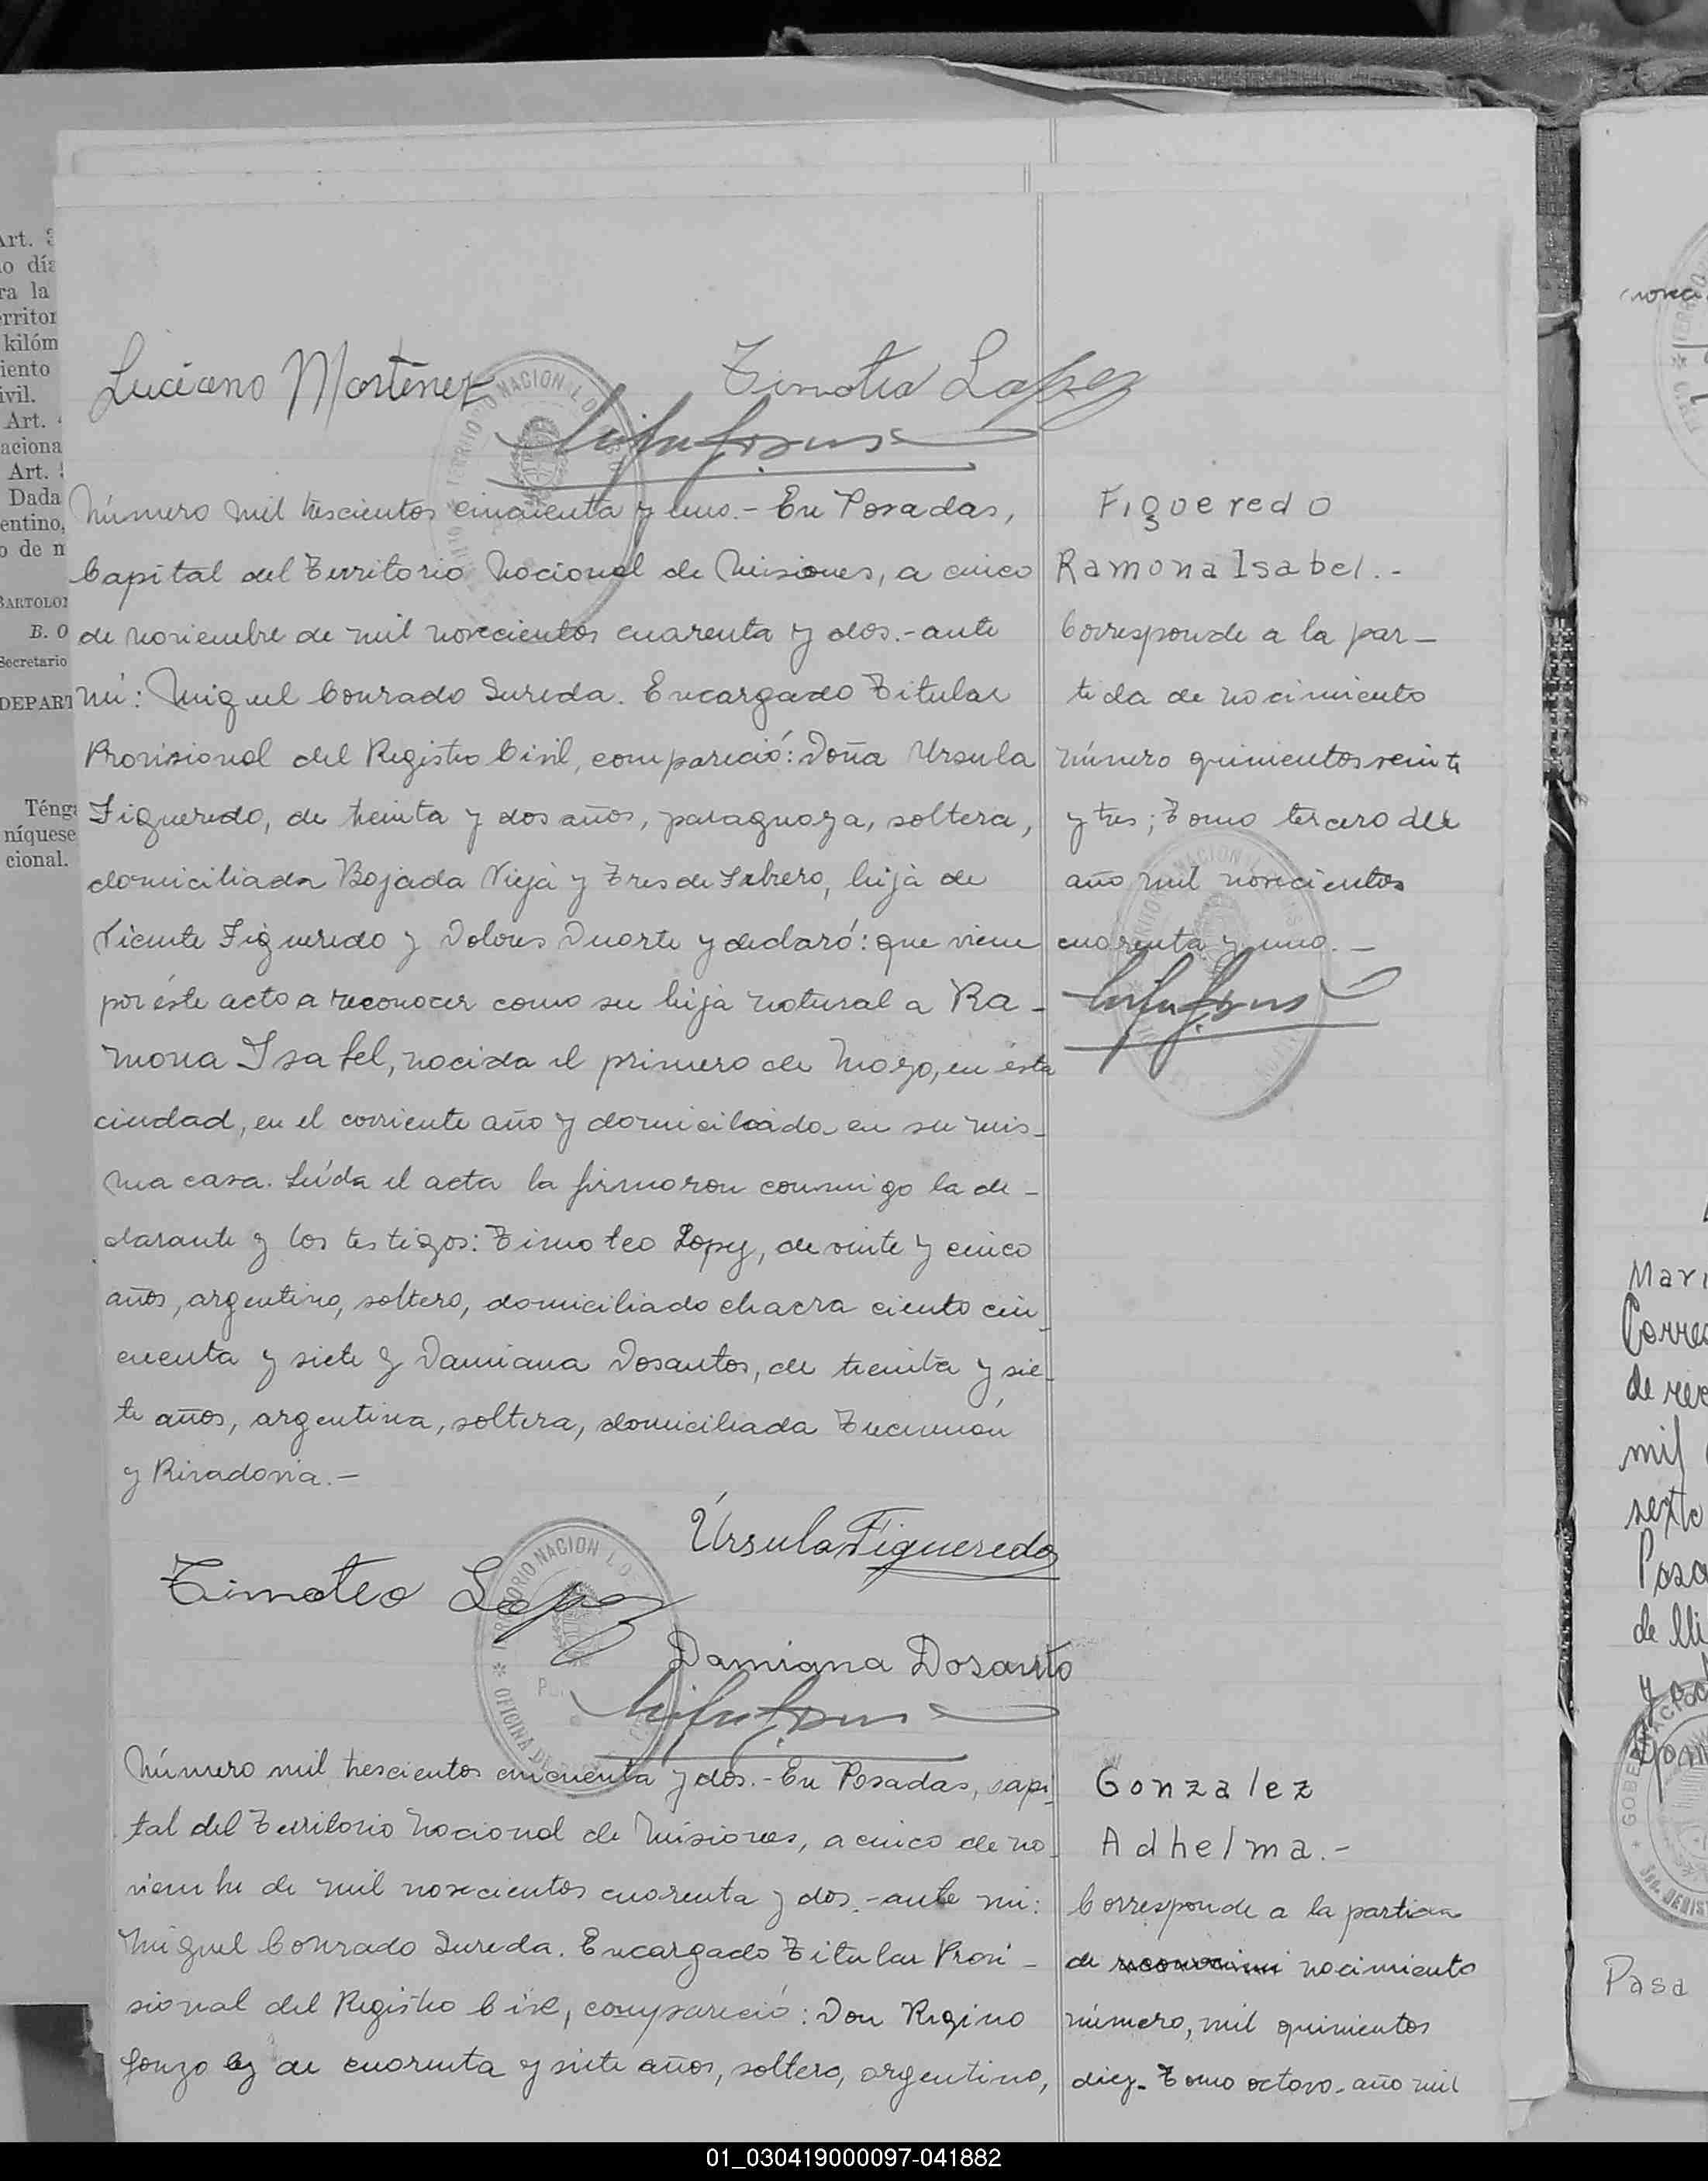 Art. 3
o día
ra la
erritor
kilóm
iento
ivil.
Art. 4
aciona
Art. 5
Dada
entino,
o de m
BARTOLO
B. O
Secretario
DEPART
Ténga
níquese
cional.
Luciano Martinez
Timoteo Lopez
Número mil trescientos cincuenta y uno.- En Posadas,
Capital del Territorio Nacional de Misiones, a cinco
de noviembre de mil novecientos cuarenta y dos.- ante
mí: Miguel Conrado Sureda. Encargado Titular
Provisional del Registro Civil, compareció: Doña Ursula
Figueredo, de treinta y dos años, paraguaya, soltera,
domiciliada Bajada Vieja y Tres de Febrero, hija de
Vicente Figueredo y Dolores Duarte y declaró: que viene
por éste acto a reconocer como su hija natural a Ra-
mona Isabel, nacida el primero de Mayo, en ésta
ciudad, en el corriente año y domiciliada en su mis-
ma casa. Leída el acta la firmaron conmigo la de-
clarante y los testigos: Timoteo Lopez, de veinte y cinco
años, argentino, soltero, domiciliado chacra ciento cin-
cuenta y siete y Damiana Dosantos, de treinta y sie-
te años, argentina, soltera, domiciliada Tucumán
y Rivadavia.-
Figueredo
Ramona Isabel.-
Corresponde a la par-
tida de nacimiento
número quinientos veinte
y tres; Tomo tercero del
año mil novecientos
cuarenta y uno.-
Úrsula Figueredo
Timoteo Lopez
Damiana Dosanto
Número mil trescientos cincuenta y dos.- En Posadas, capi-
tal del Territorio Nacional de Misiones, a cinco de no-
viembre de mil novecientos cuarenta y dos.- ante mi:
Miguel Conrado Sureda. Encargado Titular Provi-
sional del Registro Civil, compareció: Don Regino
Gonzalez de cuarenta y siete años, soltero, argentino,
Gonzalez
Adhelma.-
Corresponde a la partida
de nacimiento
número, mil quinientos
diez- Tomo octavo- año mil
Mari
Corres
de rec
mil
sexto
Posa
de Mi
Pasa
01_030419000097-041882